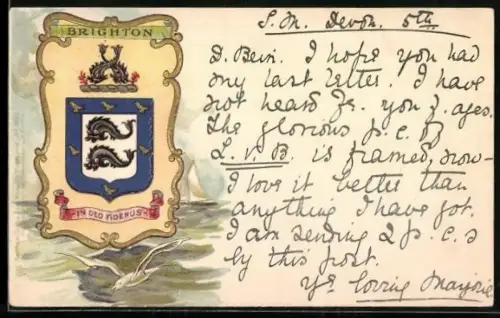 BRIGHTON
IN DEO FIDEMUS
S. M. Devon. 5th
D. Bevi. I hope you had
my last letter. I have
not heard fr. you f. ages.
The glorious p.c. of
L. v. B. is framed, now
I love it better than
anything I have got.
I am sending 2 p.c.s
by this post.
Yr loving Marjorie